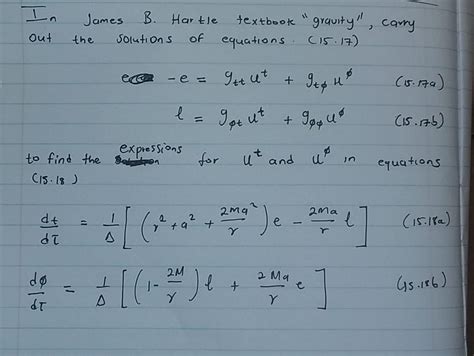 In James B. Hartle textbook "gravity", carry
out the solutions of equations (15.17)
-e = g_tt u^t + g_tϕ u^ϕ (15.17a)
l = g_ϕt u^t + g_ϕϕ u^ϕ (15.17b)
to find the expressions for u^t and u^ϕ in equations
(15.18)
dt/dτ = 1/Δ [ (r² + a² + 2Ma²/r) e - 2Ma/r l ] (15.18a)
dϕ/dτ = 1/Δ [ (1 - 2M/r) l + 2Ma/r e ] (15.18b)